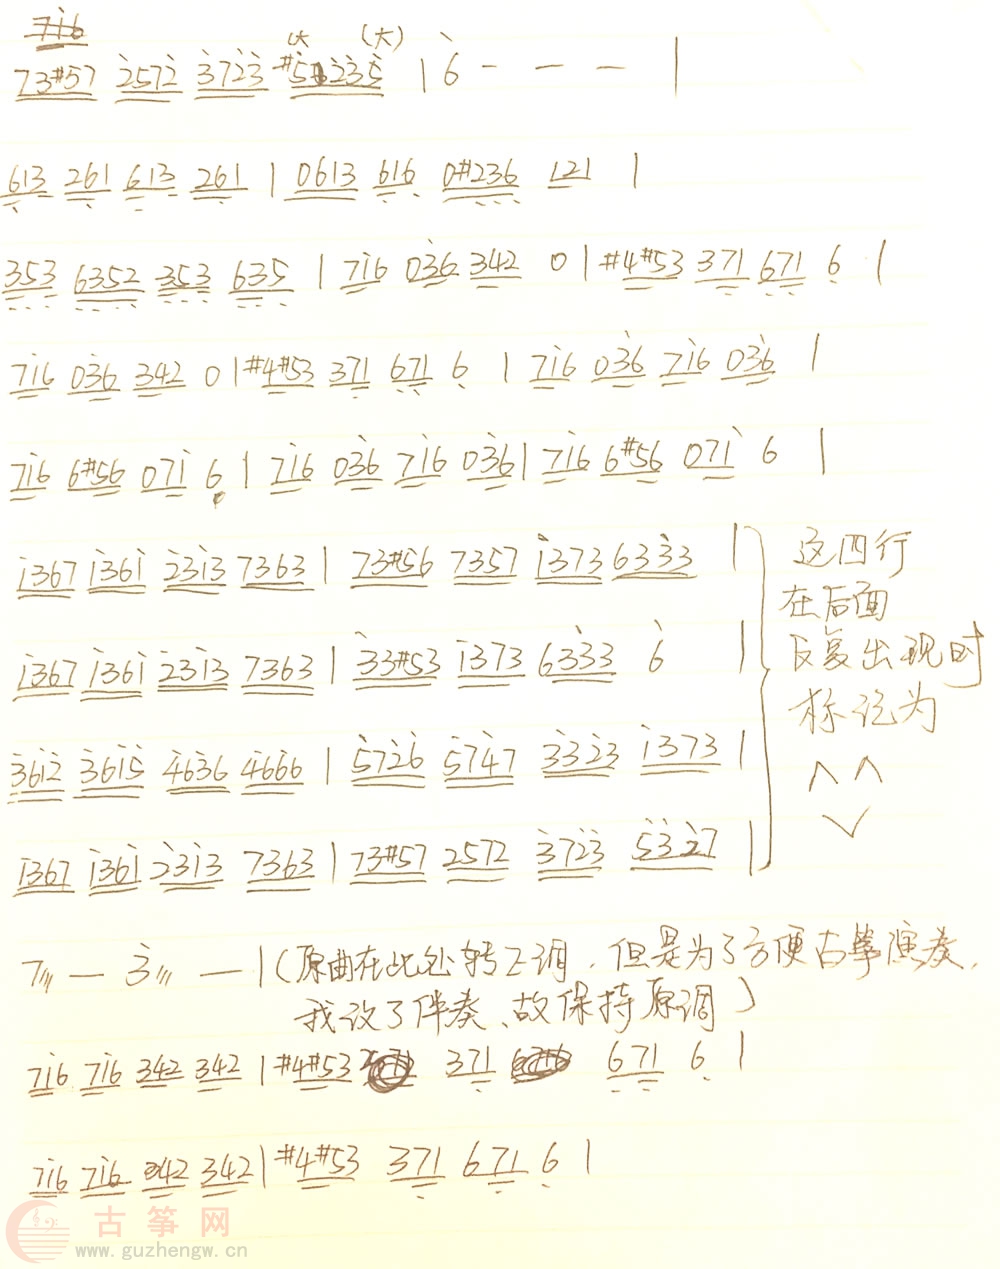 7i6
大 (大)
73#57 2572 3723 #5 235 | 6 - - - |
613 261 613 261 | 0613 616 0#236 121 |
353 6352 353 635 | 7i6 036 342 0 | #4#53 371 671 6 |
7i6 036 342 0 | #4#53 371 671 6 | 7i6 036 7i6 036 |
7i6 6#56 07i 6 | 7i6 036 7i6 036 | 7i6 6#56 07i 6 |
i367 i36i 23i3 7363 | 73#56 7357 i373 6333 |
i367 i36i 23i3 7363 | 33#53 i373 6333 6 |
36i2 36i5 4636 4666 | 5726 5747 3323 i373 |
i367 i36i 23i3 7363 | 73#57 2572 3723 5327 |
这四行
在后面
反复出现时
标记为
∧ ∧
∨
7 - 3 - | (原曲在此处转了调，但是为了方便古筝演奏，
我改了伴奏、故保持原调)
7i6 7i6 342 342 | #4#53 371 671 6 |
7i6 7i6 342 342 | #4#53 371 671 6 |
古筝网
www.guzhengw.cn